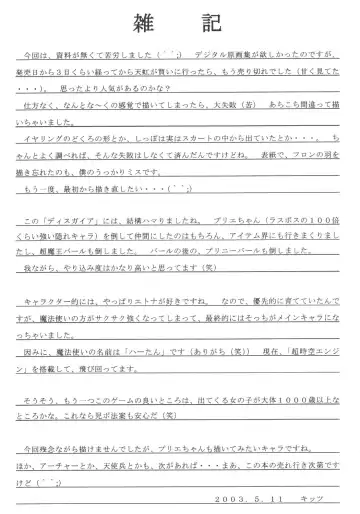 雑　記
今回は、資料が無くて苦労しました（＾＾;）　デジタル原画集が欲しかったのですが、
発売日から３日くらい経ってから天虹が買いに行ったら、もう売り切れでした（甘く見てた
・・・）。　思ったより人気があるのかな？
仕方なく、なんとな～くの感覚で描いてしまったら、大失敗（苦）　あちこち間違って描
いちゃいました。
イヤリングのどくろの形とか、しっぽは実はスカートの中から出ていたとか・・・。　ち
ゃんとよく調べれば、そんな失敗はしなくて済んだんですけどね。　表紙で、フロンの羽を
描き忘れたのも、僕のうっかりミスです。
もう一度、最初から描き直したい・・・（＾＾;）
この「ディスガイア」には、結構ハマりましたね。　プリエちゃん（ラスボスの１００倍
くらい強い隠れキャラ）を倒して仲間にしたのはもちろん、アイテム界にも行きまくりまし
たし、超魔王バールも倒しました。　バールの後の、プリニーバールも倒しました。
我ながら、やり込み度はかなり高いと思ってます（笑）
キャラクター的には、やっぱりエトナが好きですね。　なので、優先的に育てていたんで
すが、魔法使いの方がサクサク強くなってしまって、最終的にはそっちがメインキャラにな
っちゃいました。
因みに、魔法使いの名前は「ハーたん」です（ありがち（笑））　現在、「超時空エンジ
ン」を搭載して、飛び回ってます。
そうそう、もう一つこのゲームの良いところは、出てくる女の子が大体１０００歳以上な
ところかな。これなら児ポ法案も安心だ（笑）
今回残念ながら描けませんでしたが、プリエちゃんも描いてみたいキャラですね。
ほか、アーチャーとか、天使兵とかも、次があれば・・・まあ、この本の売れ行き次第です
けど（＾＾;）
２００３．５．１１　　キッツ